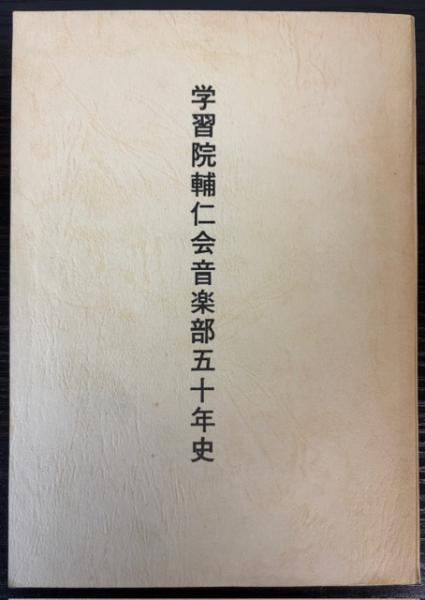 学習院輔仁会音楽部五十年史